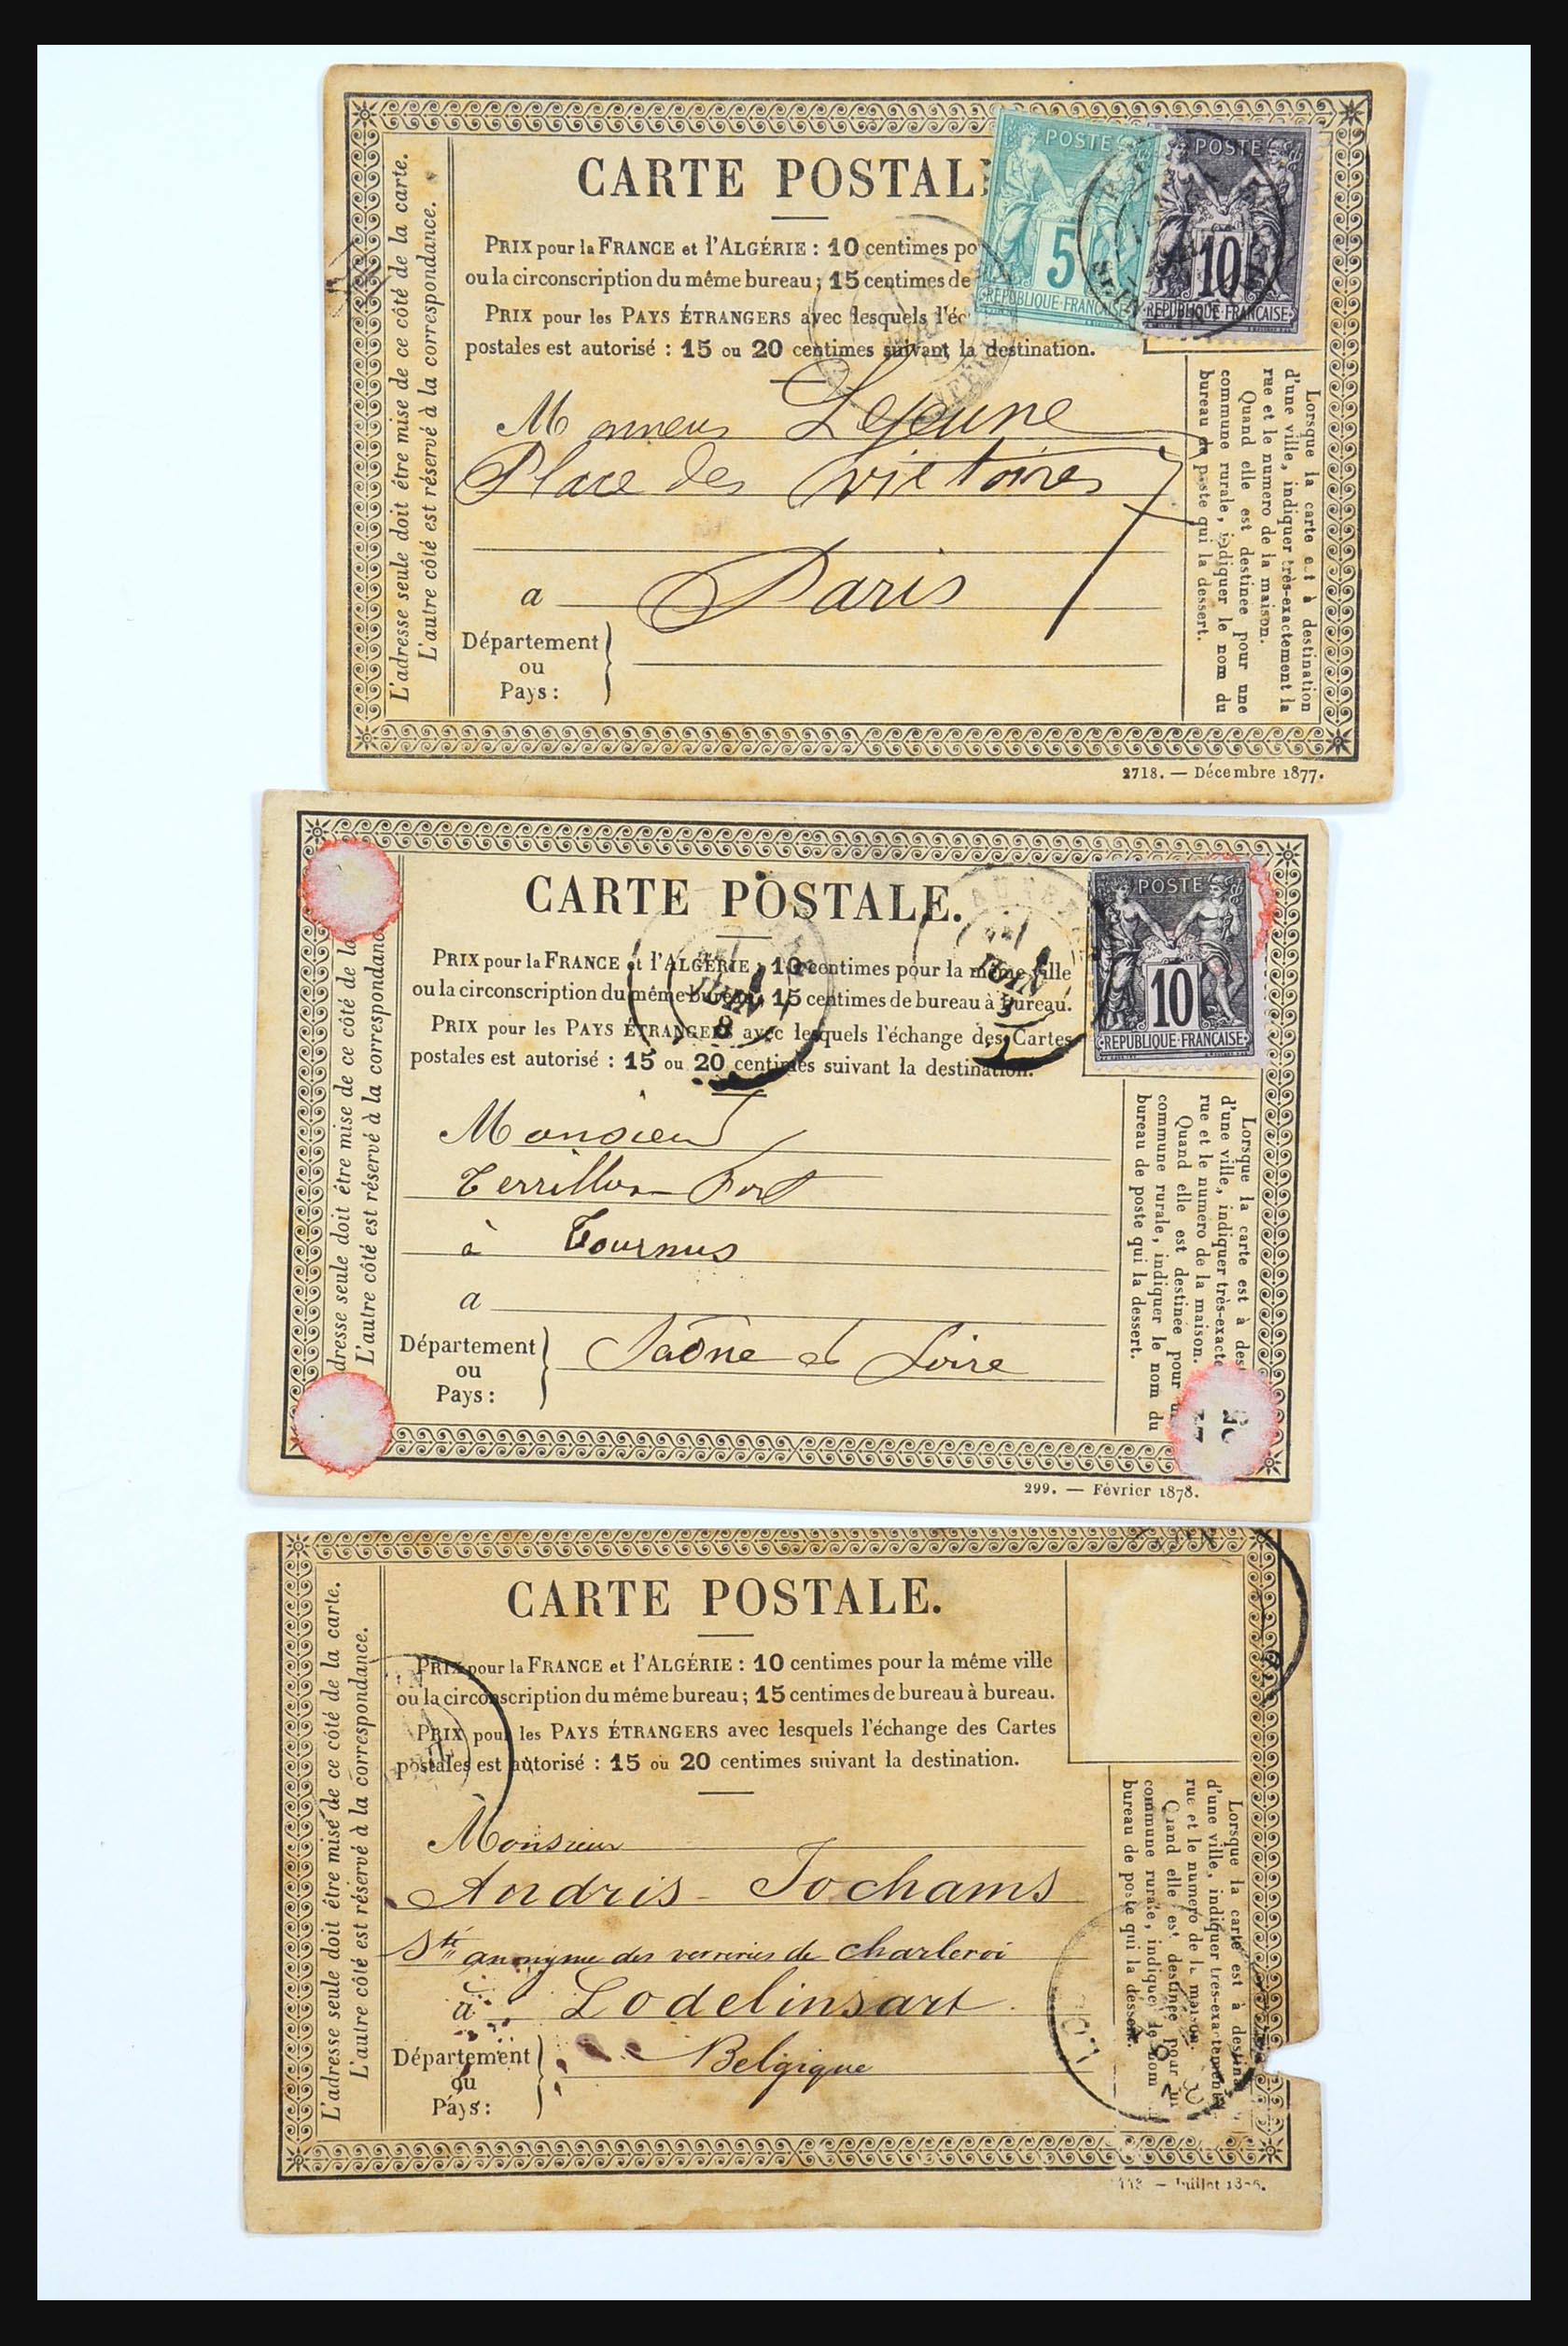 L'adresse seule doit être mise de ce côté de la carte.
L'autre côté est réservé à la correspondance.
CARTE POSTAL
PRIX pour la FRANCE et l'ALGÉRIE : 10 centimes po
ou la circonscription du même bureau ; 15 centimes de
PRIX pour les PAYS ÉTRANGERS avec lesquels l'éc
postales est autorisé : 15 ou 20 centimes suivant la destination.
POSTE
5
REPUBLIQUE FRANCAISE
POSTE
10
REPUBLIQUE FRANCAISE
Lejeune
Place des Victoires
a Paris
Département
ou
Pays :
Lorsque la carte est à destination
d'une ville, indiquer très-exactement la
rue et le numero de la maison.
Quand elle est destinée pour une
commune rurale, indiquer le nom du
bureau de poste qui la dessert.
2718. — Décembre 1877.
dresse seule doit être mise de ce côté de la
L'autre côté est réservé à la correspondanc
CARTE POSTALE.
PRIX pour la FRANCE et l'ALGÉRIE : 10 centimes pour la même ville
ou la circonscription du même bureau ; 15 centimes de bureau à bureau.
PRIX pour les PAYS ÉTRANGERS avec lesquels l'échange des Cartes
postales est autorisé : 15 ou 20 centimes suivant la destination.
JUIN
JUIN
POSTE
10
REPUBLIQUE FRANCAISE
Monsieur
Terrillon Fort
à Tournus
a
Département
ou
Pays :
Saône et Loire
Lorsque la carte est à des
d'une ville, indiquer très-exacte
rue et le numero de la maison.
Quand elle est destinée pour u
commune rurale, indiquer le nom du
bureau de poste qui la dessert.
299. — Février 1878.
L'adresse seule doit être mise de ce côté de la carte.
L'autre côté est réservé à la correspondance.
CARTE POSTALE.
PRIX pour la FRANCE et l'ALGÉRIE : 10 centimes pour la même ville
ou la circonscription du même bureau ; 15 centimes de bureau à bureau.
PRIX pour les PAYS ÉTRANGERS avec lesquels l'échange des Cartes
postales est autorisé : 15 ou 20 centimes suivant la destination.
Monsieur
Andris Jochams
Sté anonyme des verreries de Charleroi
a Lodelinsart
Département
ou
Pays :
Belgique
Lorsque la carte est à destina
d'une ville, indiquer très-exactement
rue et le numero de la maison.
Quand elle est destinée pour un
commune rurale, indiquer le nom
bureau de poste qui la dessert.
Juillet